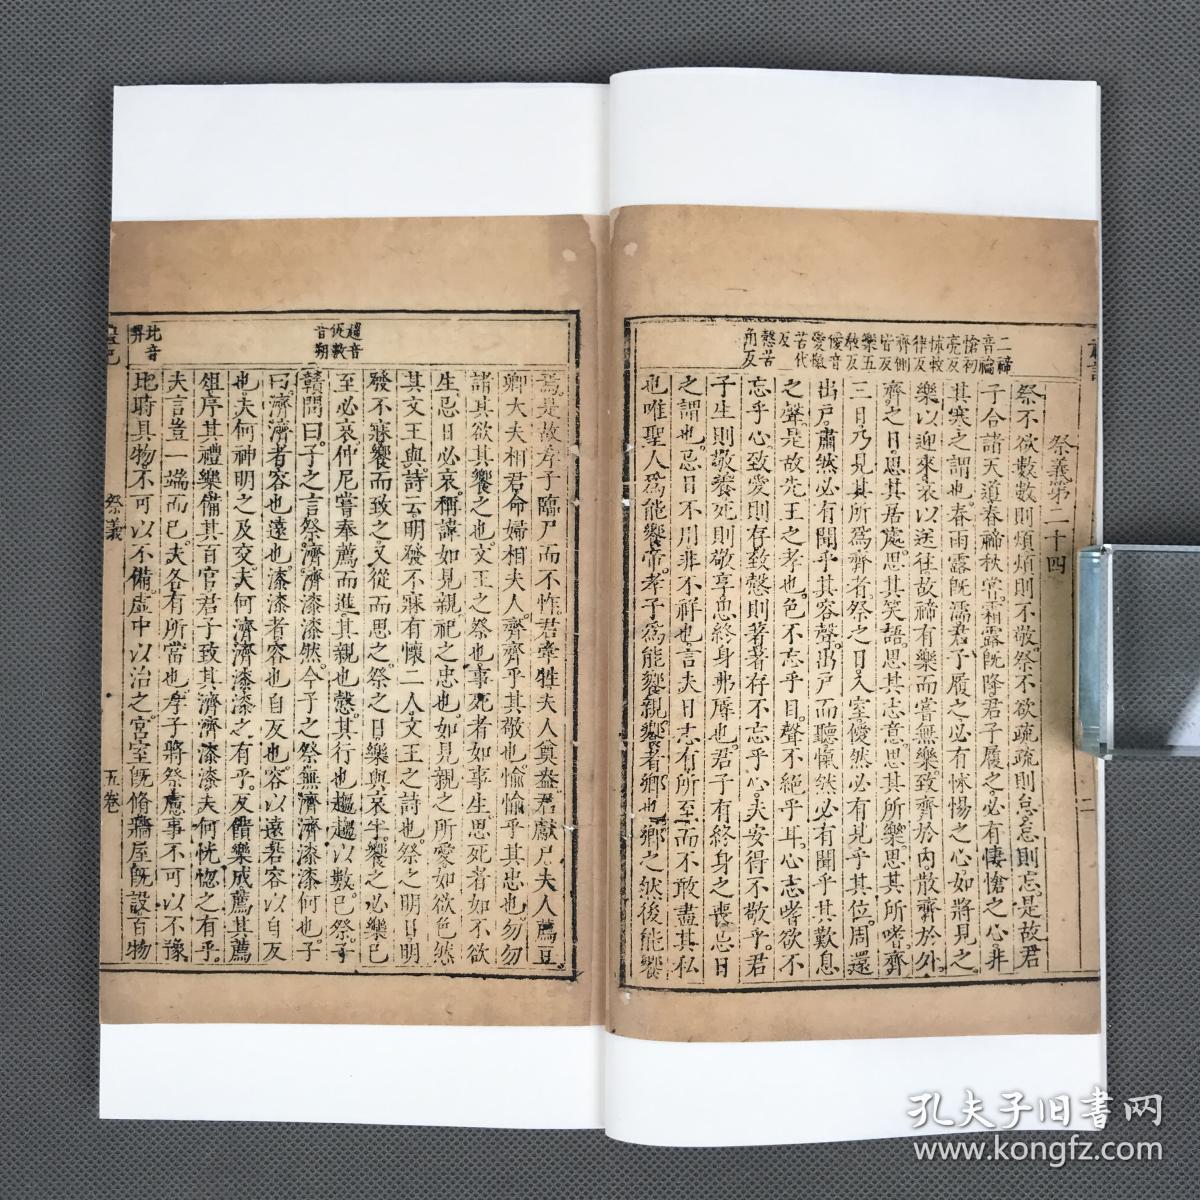 祭義第二十四
祭不欲數數則煩煩則不敬祭不欲疏疏則怠怠則忘是故君
子合諸天道春禘秋嘗霜露既降君子履之必有悽愴之心非
其寒之謂也春雨露既濡君子履之必有怵惕之心如將見之
樂以迎來哀以送往故禘有樂而嘗無樂致齊於內散齊於外
齊之日思其居處思其笑語思其志意思其所樂思其所嗜齊
三日乃見其所爲齊者祭之日入室僾然必有見乎其位周還
出戶肅然必有聞乎其容聲出戶而聽愾然必有聞乎其歎息
之聲是故先王之孝也色不忘乎目聲不絕乎耳心志嗜欲不
忘乎心致愛則存致慤則著著存不忘乎心夫安得不敬乎君
子生則敬養死則敬享思終身弗辱也君子有終身之喪忌日
之謂也忌日不用非不祥也言夫日志有所至而不敢盡其私
也唯聖人爲能饗帝孝子爲能饗親饗者鄉也鄉之然後能饗
二禘
音禴
愴初
亮反
怵敕
律反
齊側
皆反
樂五
敎反
僾音
愛愾
苦代
反
慤苦
角反
二
焉是故孝子臨尸而不怍君牽牲夫人奠盎君獻尸夫人薦豆
卿大夫相君命婦相夫人齊齊乎其敬也愉愉乎其忠也勿勿
諸其欲其饗之也文王之祭也事死者如事生思死者如不欲
生忌日必哀稱諱如見親祀之忠也如見親之所愛如欲色然
其文王與詩云明發不寐有懷二人文王之詩也祭之明日明
發不寐饗而致之又從而思之祭之日樂與哀半饗之必樂已
至必哀仲尼嘗奉薦而進其親也慤其行也趨趨以數已祭子
贛問曰子之言祭濟濟漆漆然今子之祭無濟濟漆漆何也子
曰濟濟者容也遠也漆漆者容也自反也容以遠若容以自反
也夫何神明之及交夫何濟濟漆漆之有乎反饋樂成薦其薦
俎序其禮樂備其百官君子致其濟濟漆漆夫何恍惚之有乎
夫言豈一端而已夫各有所當也孝子將祭慮事不可以不豫
比時具物不可以不備虛中以治之宮室既脩牆屋既設百物
趨音
促數
音朔
比音
畀
祭義
五卷
孔夫子旧书网
www.kongfz.com